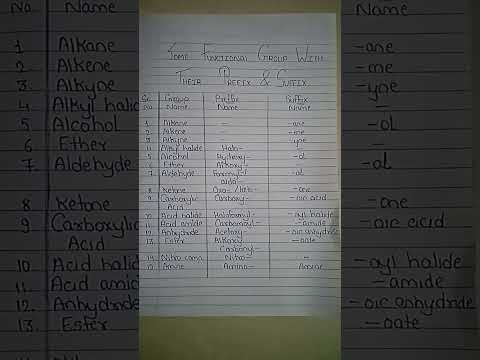 Some Functional Group With
Their Prefix & Suffix
Sr. No. Group Name Prefix Name Suffix Name
1 Alkane - -ane
2 Alkene - -ene
3 Alkyne - -yne
4 Alkyl halide Halo- -
5 Alcohol Hydroxy- -ol
6 Ether Alkoxy- -
7 Aldehyde -al
8 Ketone Oxo-/keto- -one
9 Carboxylic Acid Carboxy- -oic acid
10 Acid halide -oyl halide
11 Acid amide -amide
12 Anhydride Acetoxy- -oic anhydride
13 Ester Alkoxy Carbonyl- -oate
14 Nitro Nitro- -
15 Amine Amino- Amine
No Name Name
1 Alkane -ane
2 Alkene -ene
3. Alkyne -yne
4 Alkyl halid -
5 Alcohol -ol
6 Ether -
7 Aldehyde -al
8 Ketone -one
9 Carboxylic Acid -oic acid
10 Acid halid -oyl halide
11 Acid amid -amide
12. Anhydride -oic anhydride
13. Ester -oate